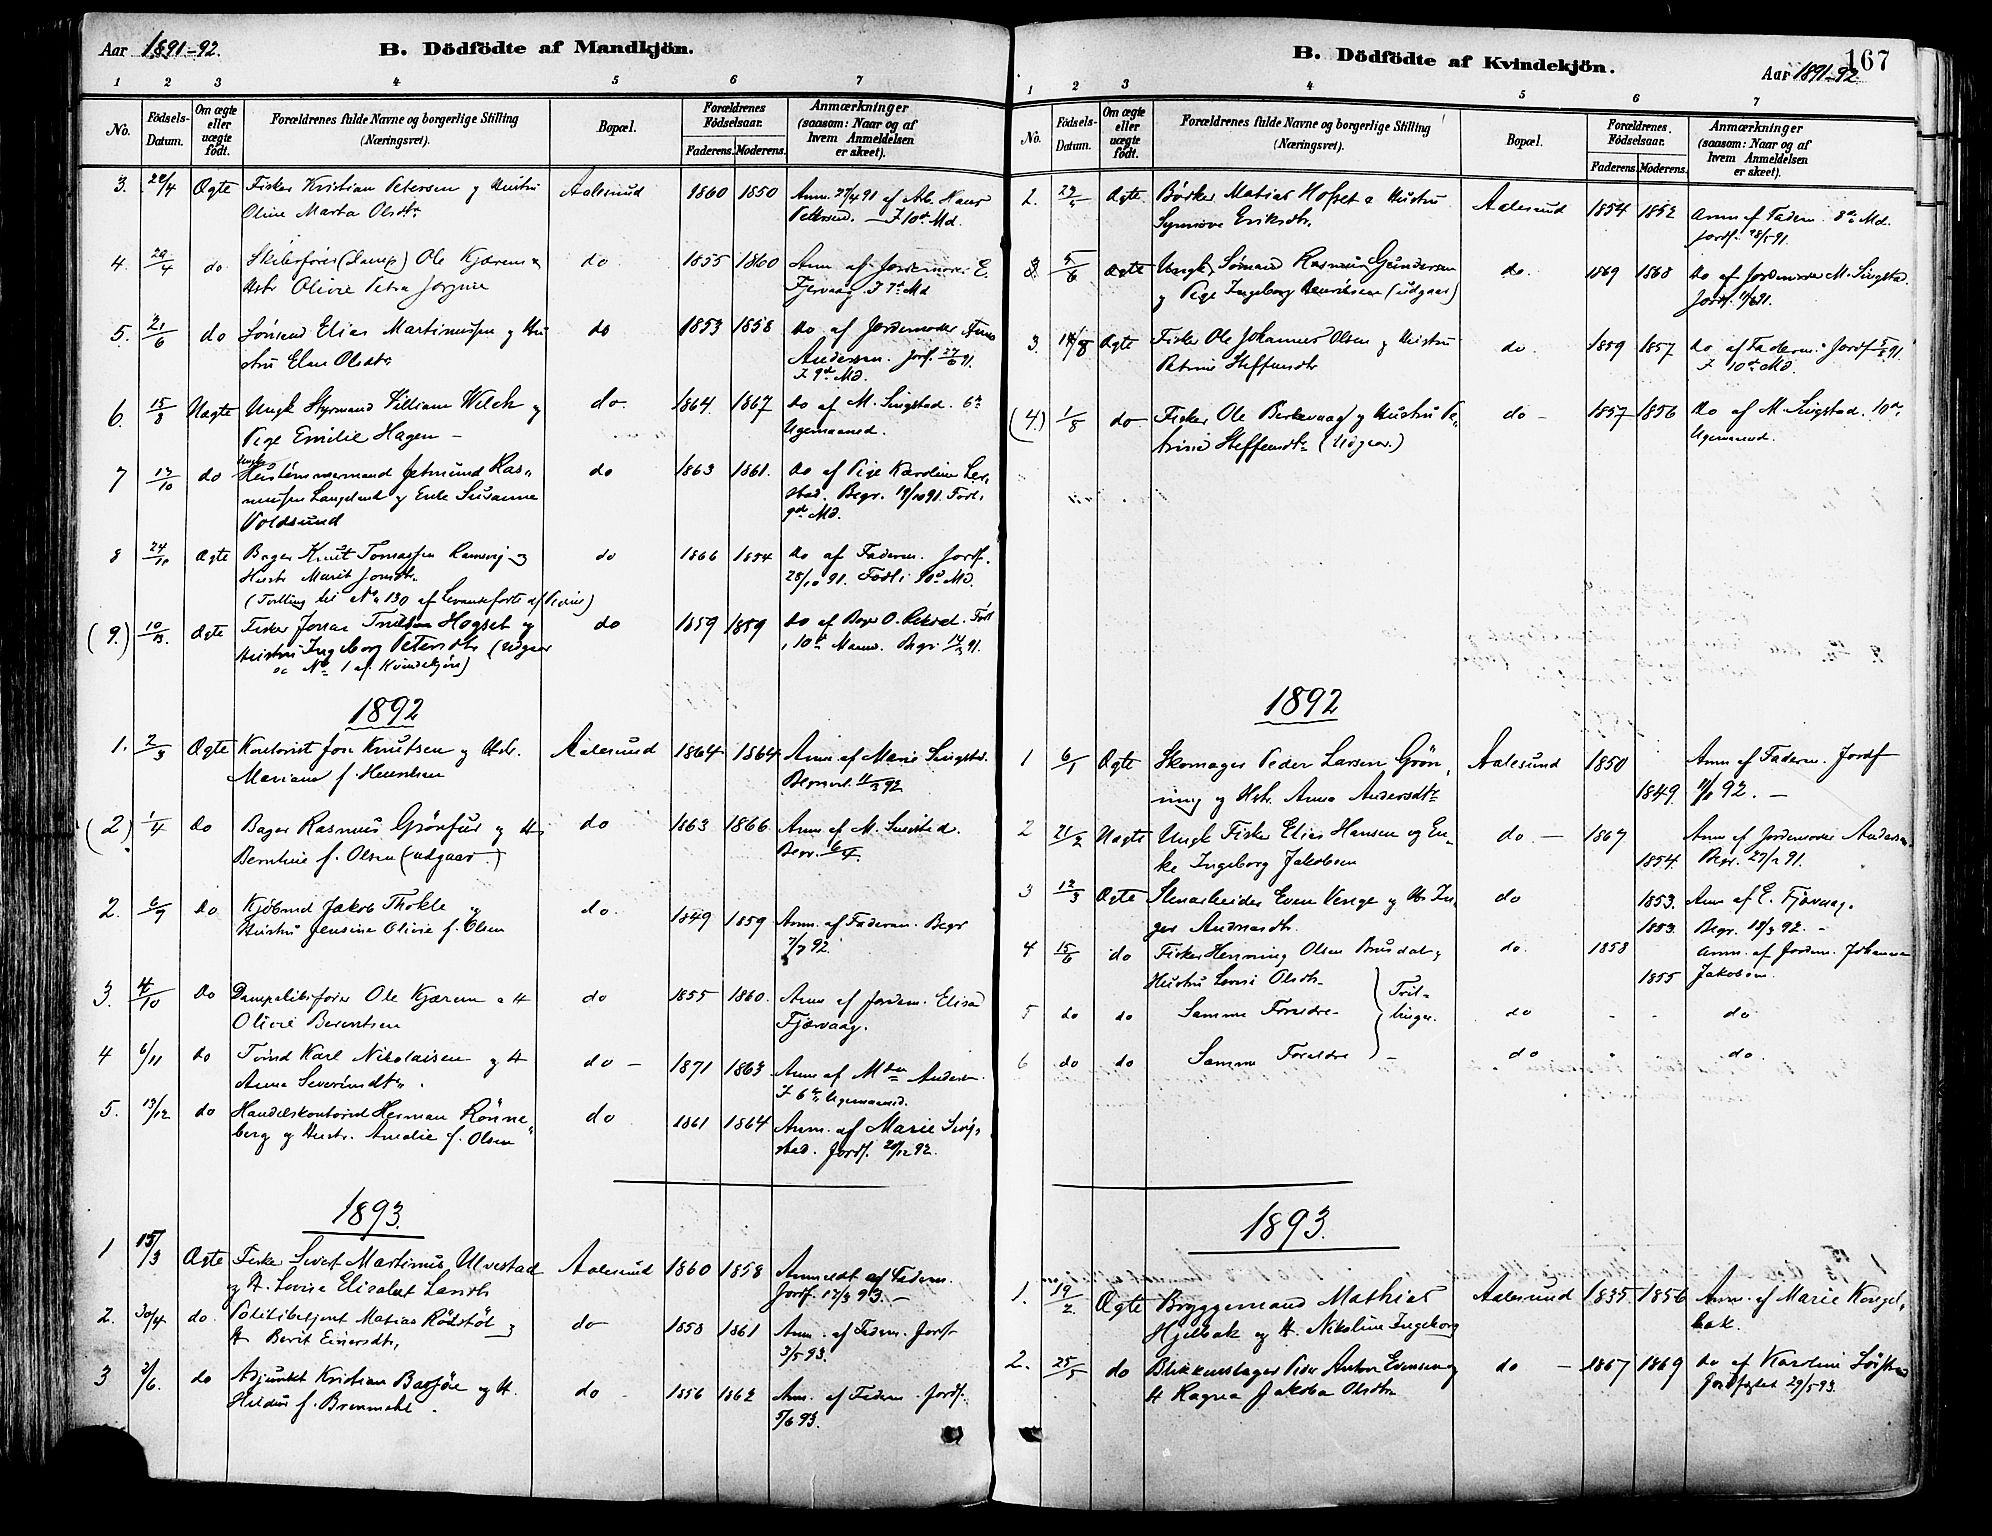 Aar 1891-92.
B. Dödfödte af Mandkjön.
1 2 3 4 5 6 7
No. Födsels-Datum. Om ægte eller uægte födt. Forældrenes fulde Navne og borgerlige Stilling (Næringsvei). Bopæl. Forældrenes Födselsaar. Faderens. Moderens. Anmærkninger (saasom: Naar og af hvem Anmeldelsen er skeet).
3. 22/4 Ægte Fisker Kristian Petersen og Hustru Aalesund 1860 1850 Anm. 27/4 91 af Arb. Hans
Oline Marta Olsdtr Pettersen. – I 10de Md.
4. 20/4 do Ole Kjærem do. 1855 1860 Anm. af Jordemor E.
Hstr Olivie Petra Jorgine Fjørvaag. I 7de Md
5. 21/6 do Elias Martinussen og Hu do 1853 1858 do af Jordemoder
stru Elen Olsdtr Andersen. Jordf. 27/6 91.
I 9de Md.
6. 15/8 Uægte Ungk Styrmand William Welch og do. 1864 1867 do af M. Singstad. 6te
Pige Emilie Hagen – Ugemaaned.
7 13/10 do Hustømmermand Jetmund Ras= do 1863 1861. do af Pige Karoline Ler,
mussen Langeland og Enke Susanne stad. Begr. 19/10 91. Født i
Voldsund 9de Md.
8 24/10 Ægte Bager Knut Tomassen Ramsvig og do 1866 1854 do af Faderen. Jordf.
Hustr Marit Jonsdtr. 28/10 91. Født i 10de Md.
(Tvilling til No 130 af Levendefødte af Pigiue)
(9.) 10/3. Ægte Fisker Jonas Hogset og do 1859 1859 do af Bager O. Født
Hustru Ingeborg Petersdtr (udgaar i 10de Maaned. Begr. 14/3 91.
No 1 af Kvindekjön)
1892
1. 2/3 Ægte Kontorist Jon Knutsen og Hstr. Aalesund 1864 1864 Anm. af Marie Singstad.
Mariane f. Henriksen Begravet 11/3 92
(2) 1/4 do Bager Rasmus Grönfur og H. do 1863 1866 Anm. af M. Singstad.
Berntine f. Olsen (udgaar.) Begr. 6/4
2. 6/9 do Kjöbmd Jakob Thokle og do. 1849 1859 Anm. af Faderen. Begr
Hustru Jensine Olivie f. Olsen 7/9 92.
3. 4/10 do Dampskibsfører Ole Kjærem og H do 1855 1860. Anm af Jordem. Elisa
Olivie Berentsen Fjærvaag.
4 6/11 do Karl Nikolaisen og H do – 1871 1863 Anm af Mdm Andersen.
Anna Severinsdtr. I 6te Ugemaaned.
5. 13/12 do Handelskontorist Herman Rönne= do 1861 1864 Anm. af Marie Sing,
berg og Hustr. Amalie f. Olsen stad. Jordf. 20/12 92.
1893.
1 15/3 Ægte Fisker Sivert Martinus Ulvestad Aalesund 1860 1858 Anmeldt af Faderen.
og H. Lovise Elisabet Larsdtr Jordf. 17/3 93. –
2. 30/4 do. Politibetjent Matias Rödstöl og do 1858 1861 Anm. af Faderen. Jordf
H. Berit Einersdtr, 3/5 93.
3 2/6. do Adjunkt Kristian Basföe og H. do 1856 1862 Anm. af Faderen. Jordf.
Hildur f. 5/6 93.
B. Dödfödte af Kvindekjön.
Aar 1891-92
167
1 2 3 4 5 6 7
No. Födsels-Datum. Om ægte eller uægte födt. Forældrenes fulde Navne og borgerlige Stilling (Næringsvei). Bopæl. Forældrenes Födselsaar. Faderens. Moderens. Anmærkninger (saasom: Naar og af hvem Anmeldelsen er skeet).
2. Ægte Bødker Matias Hofset og Hustru Aalesund 1854 1852 Anm af Faderen. 8de Md.
Synnöve Eriksdtr. Jordf. 28/5 91.
3 5/6 Ægte Ungk. Sömand Rasmus Gundersen do. 1869 1868 do af Jordemoder M. Singstad.
og Pige Ingeborg Henriksen (udgaar) Jordf. 11/6 91.
3. 1/8 Ægte Fisker Ole Johannes Olsen og Hustru do. 1859 1857 do af Faderen. Jordf 5/8 91.
Petrine Steffensdtr I 10de Md.
(4.) 1/8 do Fisker Ole Berkevaag og Hustru Pe= do – 1857 1856 do af M. Singstad. 10de
trine Steffensdtr (Udgaar.) Ugemaaned.
1892
1 6/1 Ægte Skomager Peder Larsen Grön, Aalesund 1850 Anm af Faderen. Jordf
ning og Hstr. Anna Andersdtr 1849. 11/1 92. –
2 21/2 Uægte Ungk Fisker Elias Hansen og En= do – 1867 Anm af Jordemoder Andersen
ke Ingeborg Jakobsen 1854. Begr. 27/2 91.
3 12/3 Ægte Stenarbeider Even Venge og H. In, do 1853. Anm af E. Fjørvaag.
ger Andreasdtr. 1853. Begr. 18/3 92. –
4 15/6 do Fisker Henning Olsen Brusdal og do. 1858 Anm. af Jordem. Johanna
Hustru Lovise Olsdtr. 1855 Jakobsen.
5 do do Samme Foreldre – Tril= do - - do
linger.
6 do do Samme Foreldre – do - do.
1893.
1. 19/2 Ægte Bryggemand Mathias Aalesund 1835. 1856 Anm. af Marie Kongel,
Hjelbak og H. Nikoline Ingeborg bak.
2. 25/5 do Blikkenslager Peder Anton Evensen og do – 1867 1869 do af Karoline
H Ragna Jakoba Olsdtr. Jordfæstet 29/5 93.